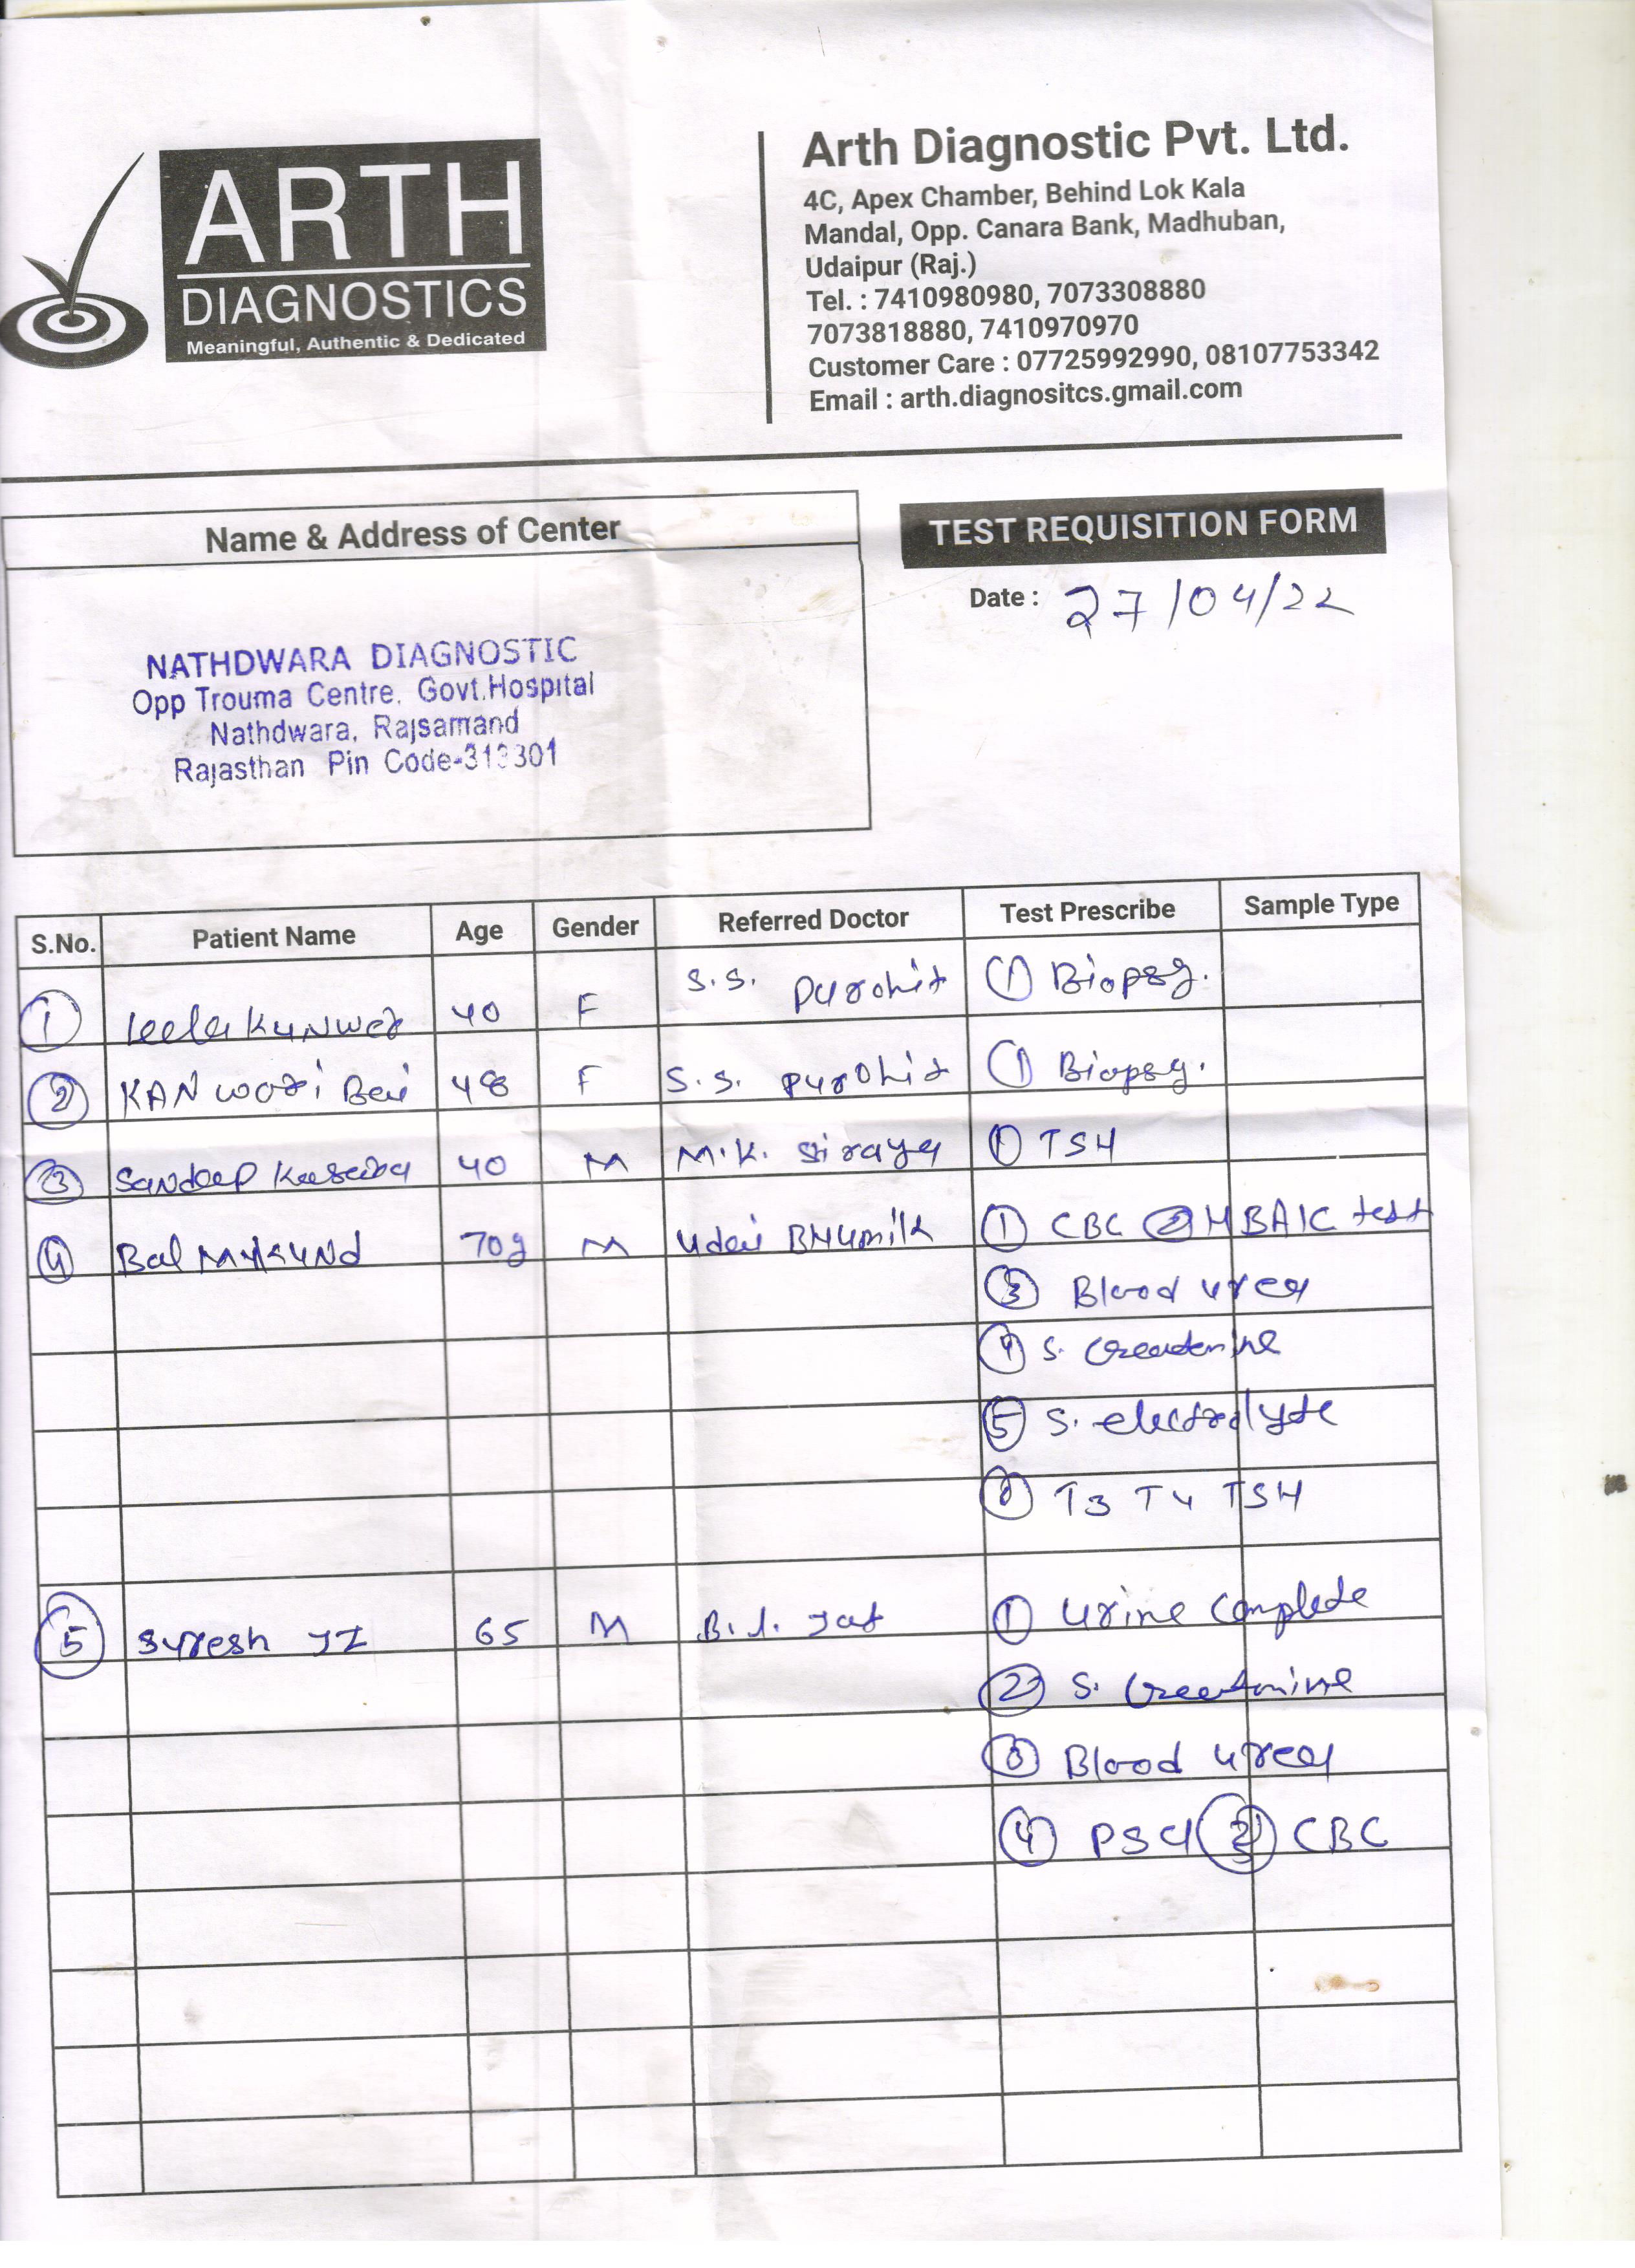 ARTH
DIAGNOSTICS
Meaningful, Authentic & Dedicated
Arth Diagnostic Pvt. Ltd.
4C, Apex Chamber, Behind Lok Kala
Mandal, Opp. Canara Bank, Madhuban,
Udaipur (Raj.)
Tel. : 7410980980, 7073308880
7073818880, 7410970970
Customer Care : 07725992990, 08107753342
Email : arth.diagnositcs.gmail.com
Name & Address of Center
TEST REQUISITION FORM
Date : 27/04/22
NATHDWARA DIAGNOSTIC
Opp Trouma Centre, Govt.Hospital
Nathdwara, Rajsamand
Rajasthan Pin Code-313301
S.No. Patient Name Age Gender Referred Doctor Test Prescribe Sample Type
1 Leela Kunwer 40 F S.S. Purohit 1 Biopsy.
2 KAN 48 F S.S. Purohit 1 Biopsy.
3 Sandeep 40 M M.K. 1 TSH
4 Bal Mukund 70y M Udai 1 CBC 2 HBA1C test
3 Blood urea
4 S.
5 S. electrolyte
T3 T4 TSH
5 Suresh JI 65 M B.l. Jat 1 Urine Complete
2 S.
3 Blood urea
4 PSA CBC